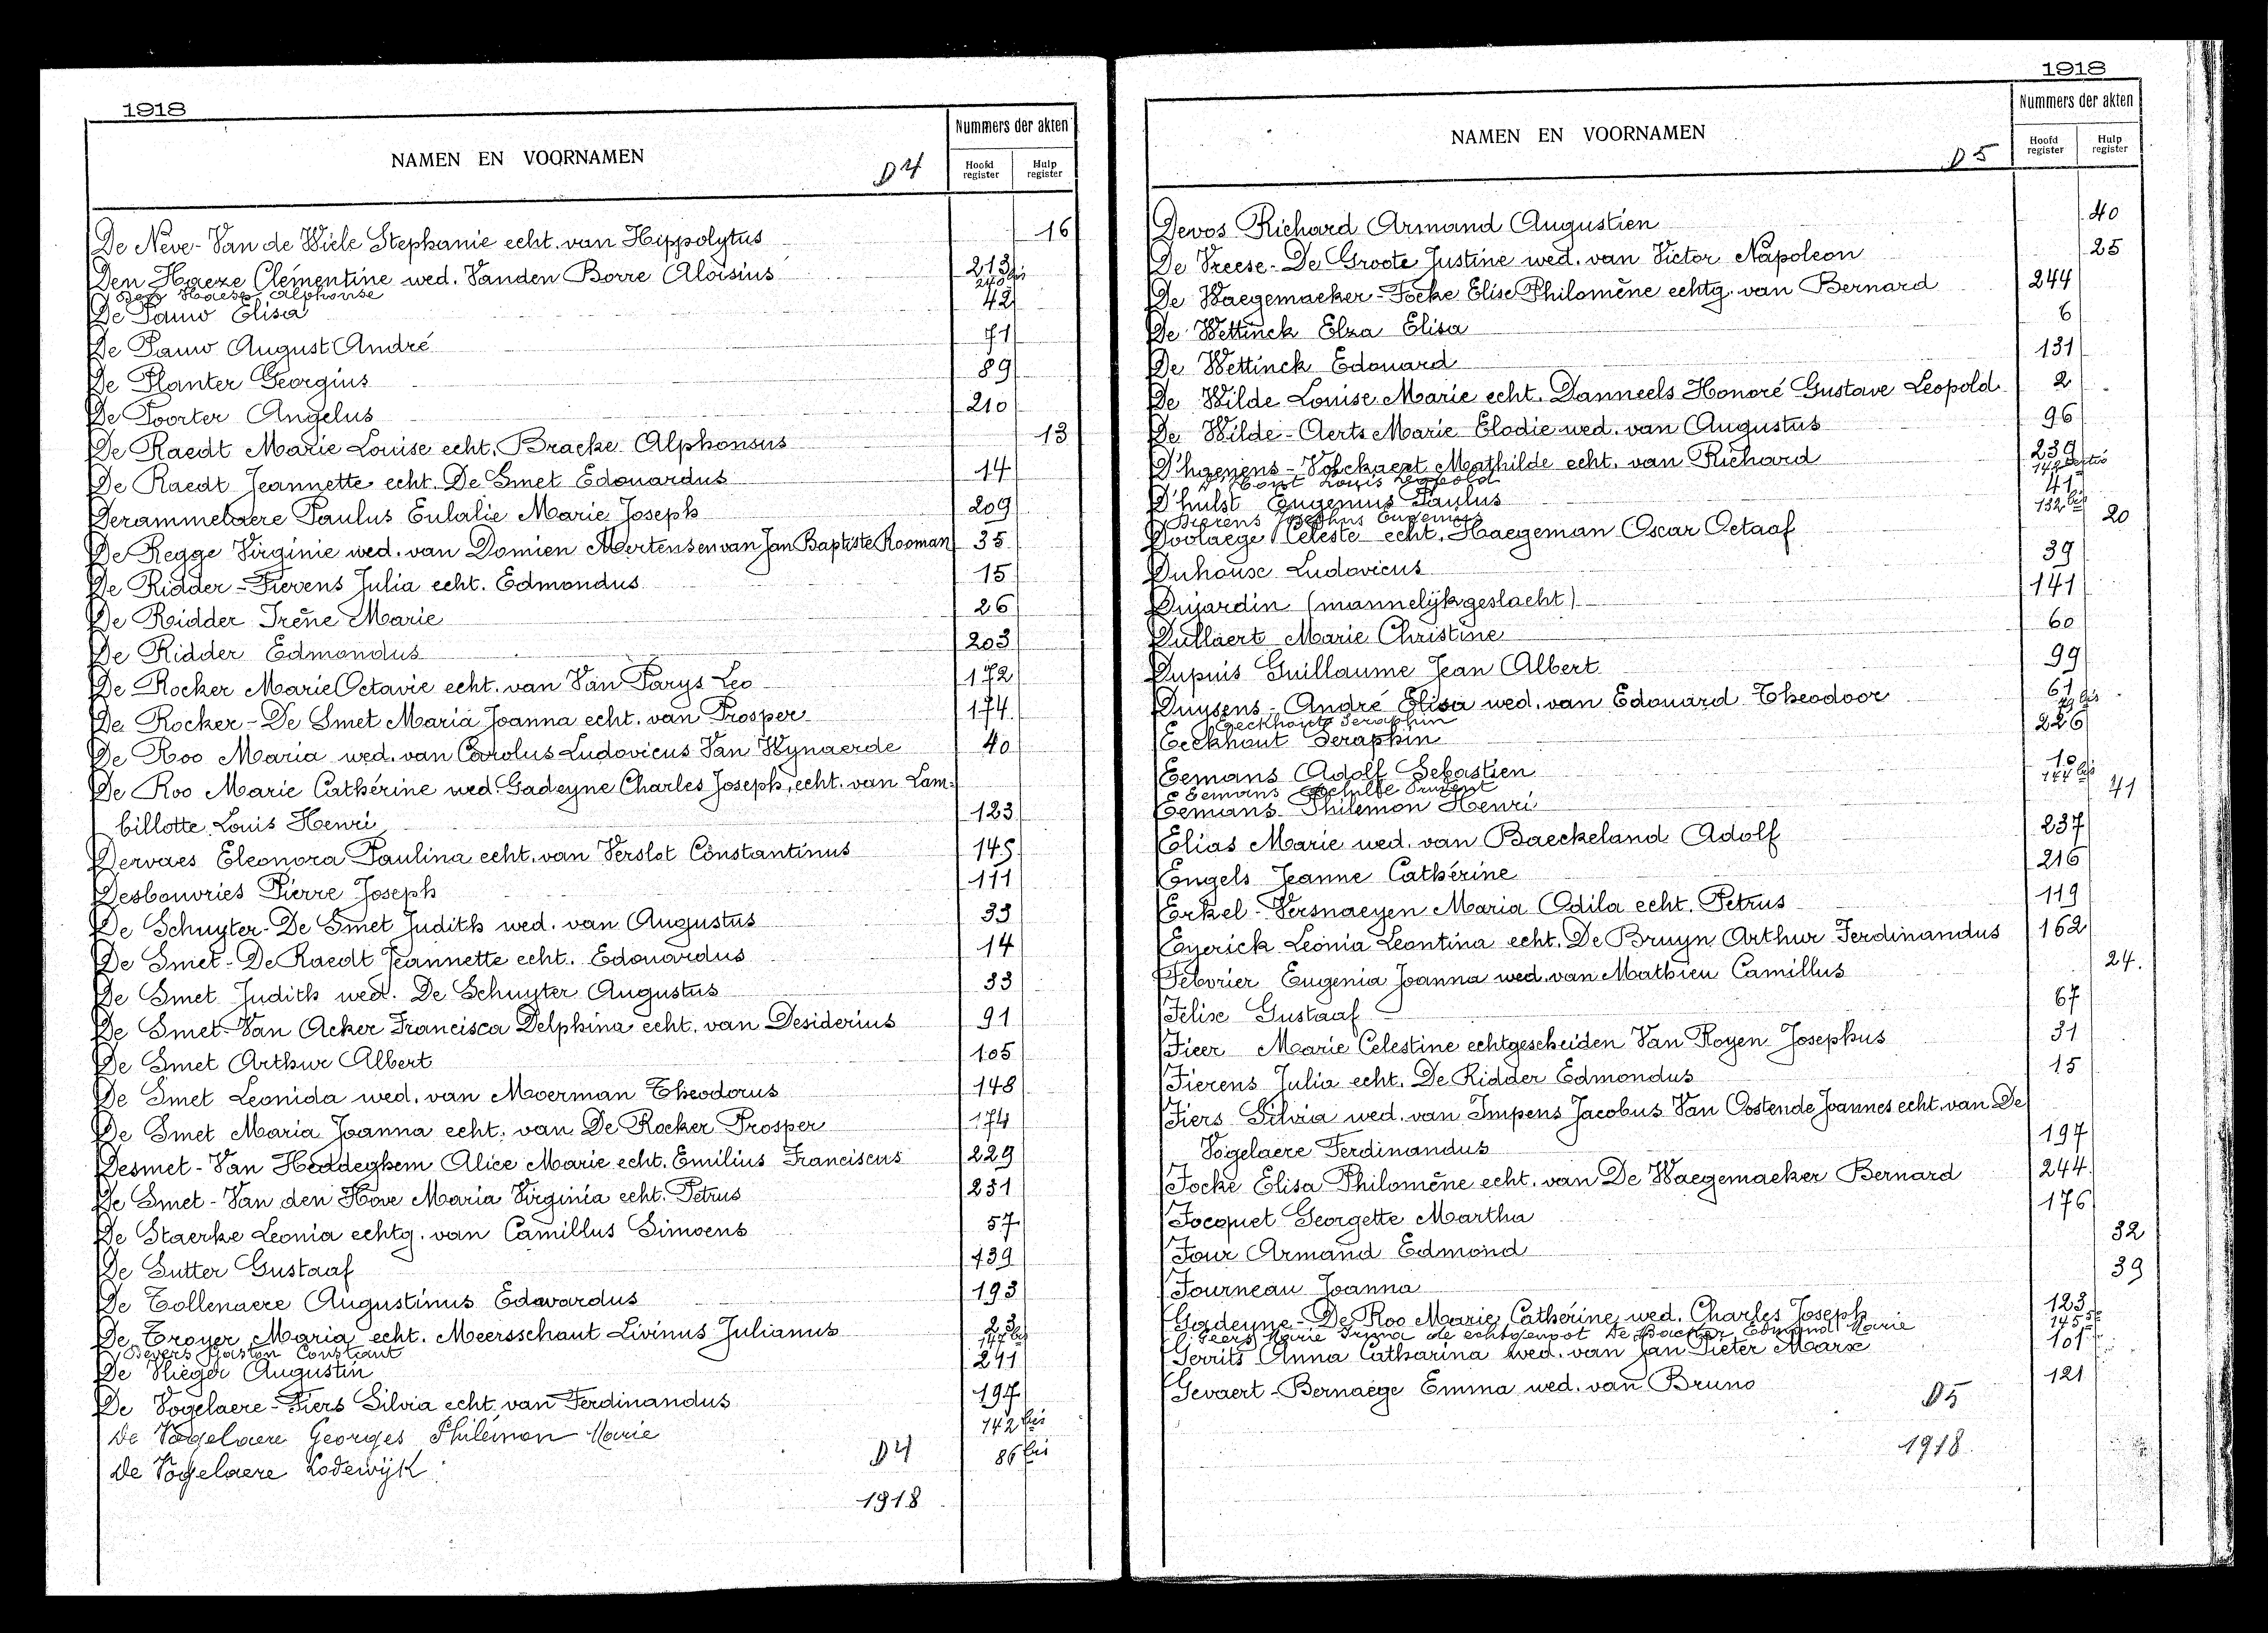 1918
NAMEN EN VOORNAMEN
D4
Nummers der akten
Hoofd register
Hulp register
De Neve-Van de Wiele Stephanie echt. van Hippolytus 16
Den Haeze Clémentine wed. Vanden Borre Aloïsius 213
Den Haese Alphonse 240 bis
De Pauw Elisa 42
De Pauw August André 71
De Planter Georgius 89
De Poorter Angelus 210
De Raedt Marie Louise echt. Bracke Alphonsus 13
De Raedt Jeannette echt. De Smet Edouardus 14
Derammelaere Paulus Eulalie Marie Joseph 209
De Regge Virginie wed. van Domien Mertens en van Jan Baptiste Rooman 35
De Ridder-Fierens Julia echt. Edmondus 15
De Ridder Irène Marie 26
De Ridder Edmondus 203
De Rocker Marie Octavie echt. van Van Parys Leo 172
De Rocker-De Smet Maria Joanna echt. van Prosper 174
De Roo Maria wed. van Carolus Ludovicus Van Wynaerde 40
De Roo Marie Cathérine wed. Gadeyne Charles Joseph, echt. van Lam-
billotte Louis Henri 123
Dervaes Eleonora Paulina echt. van Verslot Constantinus 145
Desbouvries Pierre Joseph 111
De Schuyter-De Smet Judith wed. van Augustus 33
De Smet-De Raedt Jeannette echt. Edouardus 14
De Smet Judith wed. De Schuyter Augustus 33
De Smet-Van Acker Francisca Delphina echt. van Desiderius 91
De Smet Arthur Albert 105
De Smet Leonida wed. van Moerman Theodorus 148
De Smet Maria Joanna echt. van De Rocker Prosper 174
Desmet-Van Heddeghem Alice Marie echt. Emilius Franciscus 229
De Smet-Van den Hove Maria Virginia echt. Petrus 231
De Staerke Leonia echtg. van Camillus Simoens 57
De Sutter Gustaaf 139
De Tollenaere Augustinus Edawardus 193
De Troyer Maria echt. Meersschaut Livinus Julianus 23
Devers Gaston Constant 147 bis
De Vlieger Augustin 241
De Vogelaere-Fiers Silvia echt. van Ferdinandus 197
De Vogelaere Georges Philémon Marie 142 bis
De Vogelaere Lodewijk 86 bis
D4
1918
1918
NAMEN EN VOORNAMEN
D5
Nummers der akten
Hoofd register
Hulp register
Devos Richard Armand Augustien 40
De Vreese-De Groote Justine wed. van Victor Napoleon 25
De Waegemaeker-Focke Elise Philomène echtg. van Bernard 244
De Wettinck Elza Elisa 6
De Wettinck Edouard 131
De Wilde Louise Marie echt. Danneels Honoré Gustave Leopold 2
De Wilde-Aerts Marie Elodie wed. van Augustus 96
D'haenens-Volckaert Mathilde echt. van Richard 239
D'Hont Louis Leopold 148
D'hulst Eugenius Paulus 41
Dierens Josephus Eugenius 132 bis
Doolaege Céleste echt. Haegeman Oscar Octaaf 20
Duhouse Ludovicus 39
Dujardin (mannelijk geslacht) 141
Dullaert Marie Christine 60
Dupuis Guillaume Jean Albert 99
Duysens-André Elisa wed. van Edouard Theodoor 61
Eeckhoute Seraphin bis
Eeckhout Seraphin 226
Eemans Adolf Sebastien 18
Eemans Prudent 144 bis
Eemans Philemon Henri 41
Elias Marie wed. van Baeckeland Adolf 237
Engels Jeanne Cathérine 216
Erkel-Versnaeyen Maria Odila echt. Petrus 119
Eyerick Leonia Leontina echt. De Bruyn Arthur Ferdinandus 162
Febvrier Eugenia Joanna wed. van Mathieu Camillus 24.
Felise Gustaaf 67
Fieer Marie Celestine echtgescheiden Van Royen Josephus 31
Fierens Julia echt. De Ridder Edmondus 15
Fiers Silvia wed. van Impens Jacobus Van Oostende Joannes echt. van De
Vogelaere Ferdinandus 197
Focke Elisa Philomène echt. van De Waegemaeker Bernard 244
Focquet Georgette Martha 176
Four Armand Edmond 32
Fourneau Joanna 39
Gadeyne-De Roo Marie Cathérine wed. Charles Joseph 123
Geers Marie Irma de echtgenoot De Backer Edmond Marie 145
Gerrits Anna Catharina wed. van Jan Pieter Marx 101
Gevaert-Bernaège Emma wed. van Bruno 121
D5
1918.